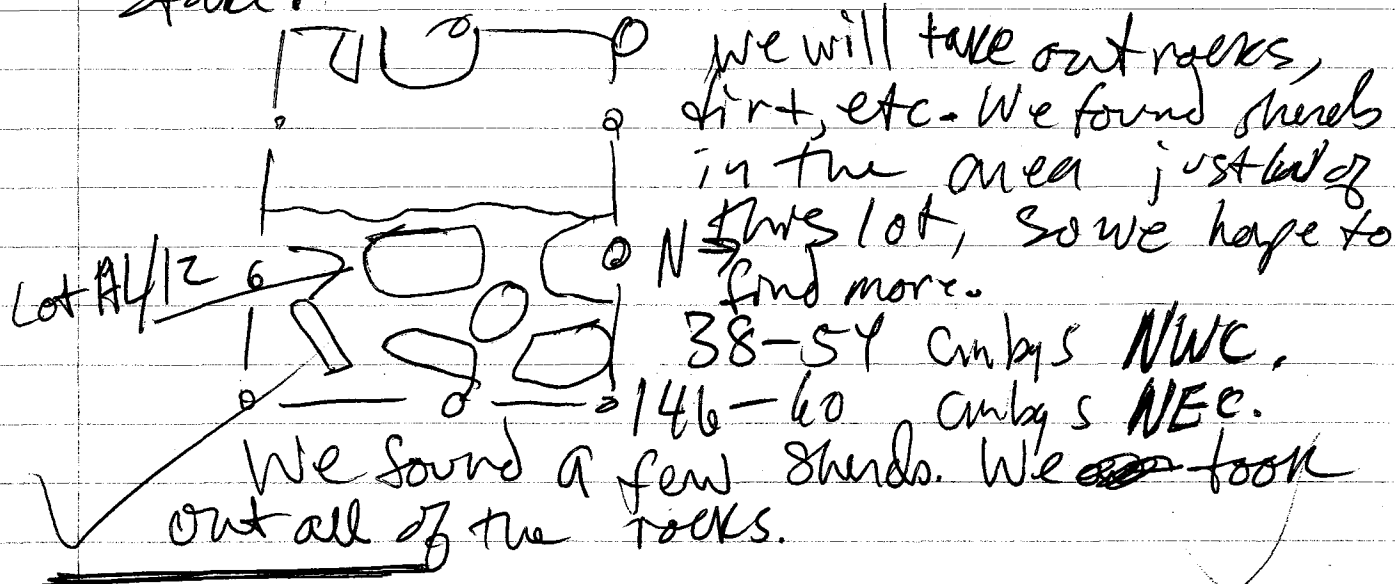 we will take out rocks,
dirt, etc. We found sherds
in the area just W of
this lot, so we hope to
N
find more.
Lot A4/12
38-54 cmbgs NWC.
146-60 cmbgs NEC.
We found a few sherds. We took
out all of the rocks.